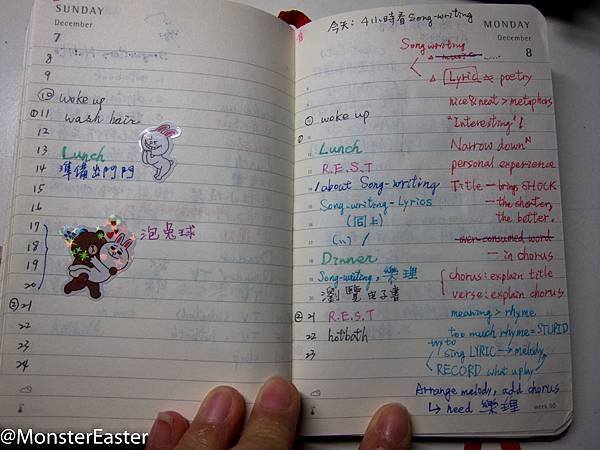 SUNDAY
December
7
8
9
⑩ woke up
11 wash hair
12
13 Lunch
14 準備出門
15
16
17 泡兔球
18
19
20
21
22
23
24
今天: 4小時看Song-writing
MONDAY
December
8
Song writing
△ music ......
△ Lyric ≈ poetry
nice & neat > metaphors
woke up
"Interesting"!
Lunch
Narrow down
R.E.S.T
personal experience
about Song-writing
Title — brings SHOCK
Song-writing-Lyrics
— the shorter,
(同上)
the better.
(〃)
over-consumed word
Dinner
— in chorus
Song-writing, 樂理
chorus: explain title
瀏覽电子書
verse: explain chorus
21 R.E.S.T
meaning > rhyme
22 hotbath
too much rhyme = STUPID
23
try to
sing LYRIC → melody
RECORD what u play
Arrange melody, add chorus
↳ need 樂理
week 50
@MonsterEaster